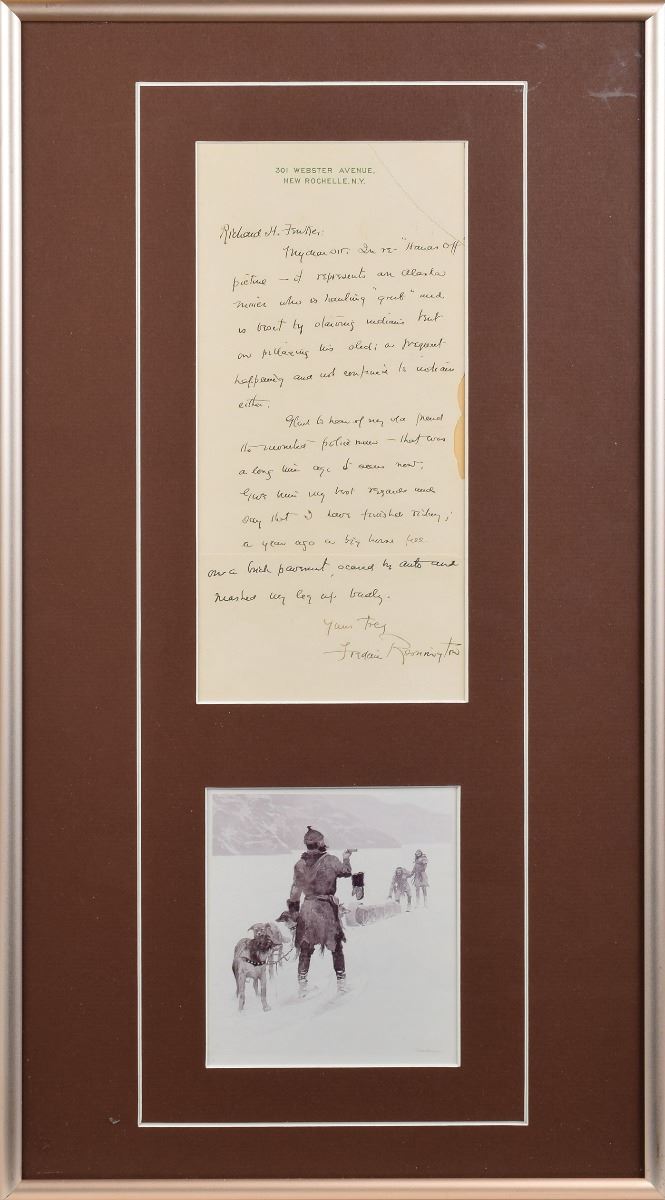 301 WEBSTER AVENUE,
NEW ROCHELLE, N.Y.
Richard H.
My dear sir: In re- "Hands Off"
picture — it represents an Alaska
miner who is hauling "grub" and
is beset by starving indians bent
on pillaging his sled; a frequent
happening and not confined to indians
either.
Glad to hear of my old friend
the mounted police man — that was
a long time ago it seems now.
Give him my best regards and
say that I have finished riding;
a year ago a big horse fell
on a brick pavement, scared by auto and
mashed my leg up badly.
Yours truly
Frederic Remington